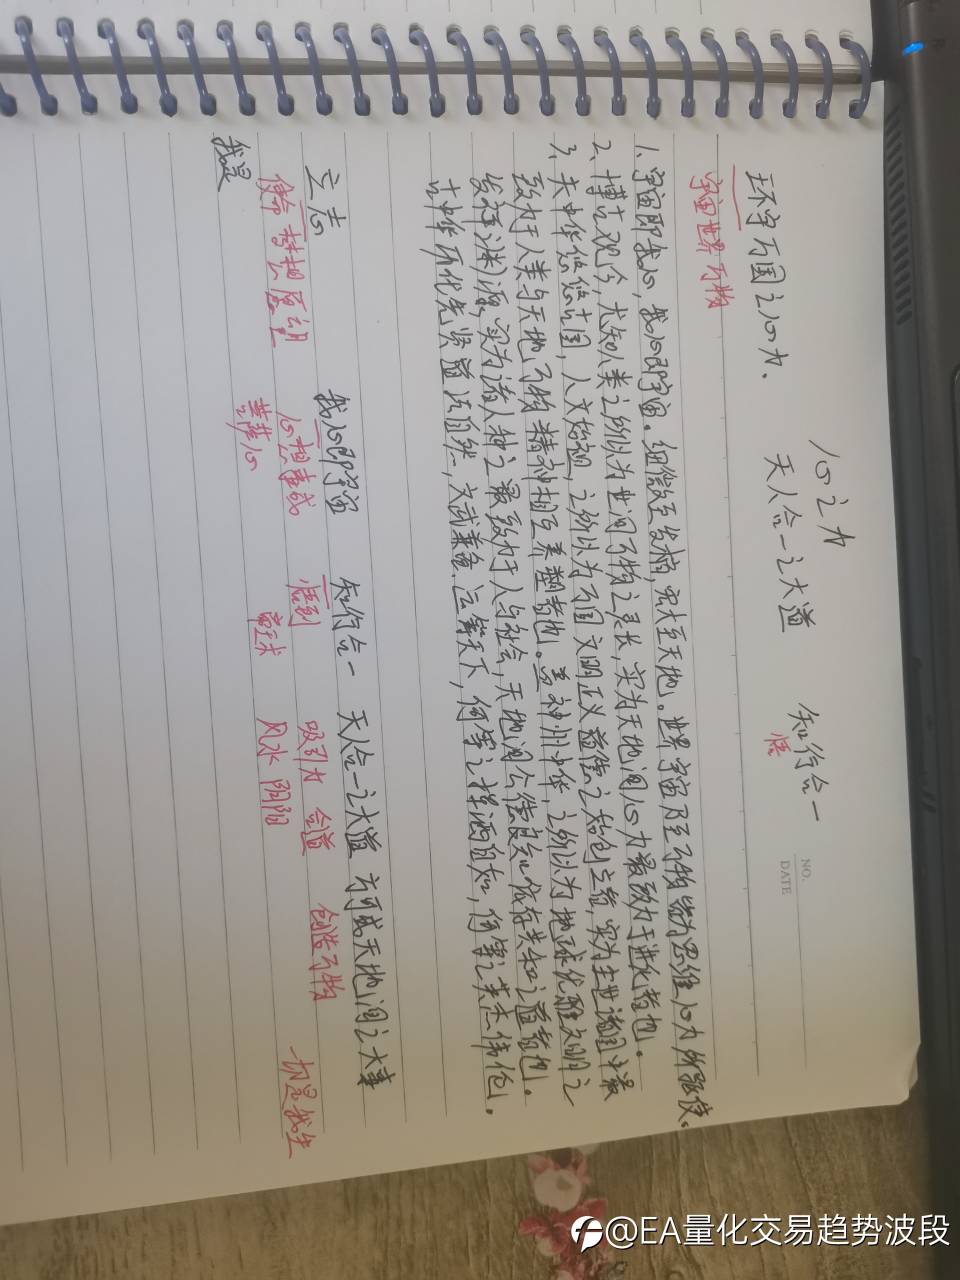 NO.
DATE
心之力
天人合一之大道 知行合一
悟
环宇万国之心力.
宇宙世界 万物
1、宇宙即我心，我心即宇宙。细微至发梢，宏大至天地。世界宇宙乃至万物皆为思维心力所驱使。
2、博古观今，尤知人类之所以为世间万物之灵长，实为天地间心力最致力于进化者也。
3、夫中华悠悠古国，人文始祖，之所以为万国文明正义道德之始创立者，实为主世诸国中最
致力于人类与天地万物精神相互养塑者也。当神州中华，之所以为地球优雅文明之
发祥渊源，实为诸人种之最致力于人与社会，天地间公德良知依存共和之道者也。
古中华历代先贤道法自然，文武兼备，运筹天下，何等之挥洒自如，何等之英杰伟伦。
立志 我心即宇宙 知行合一 天人合一之大道 方可成天地间之大事
使命 梦想 愿望 心想事成 悟到 吸引力 合道 创造万物 一切是我生
菩萨心 帝王术 风水 阴阳
我是
@EA量化交易趋势波段